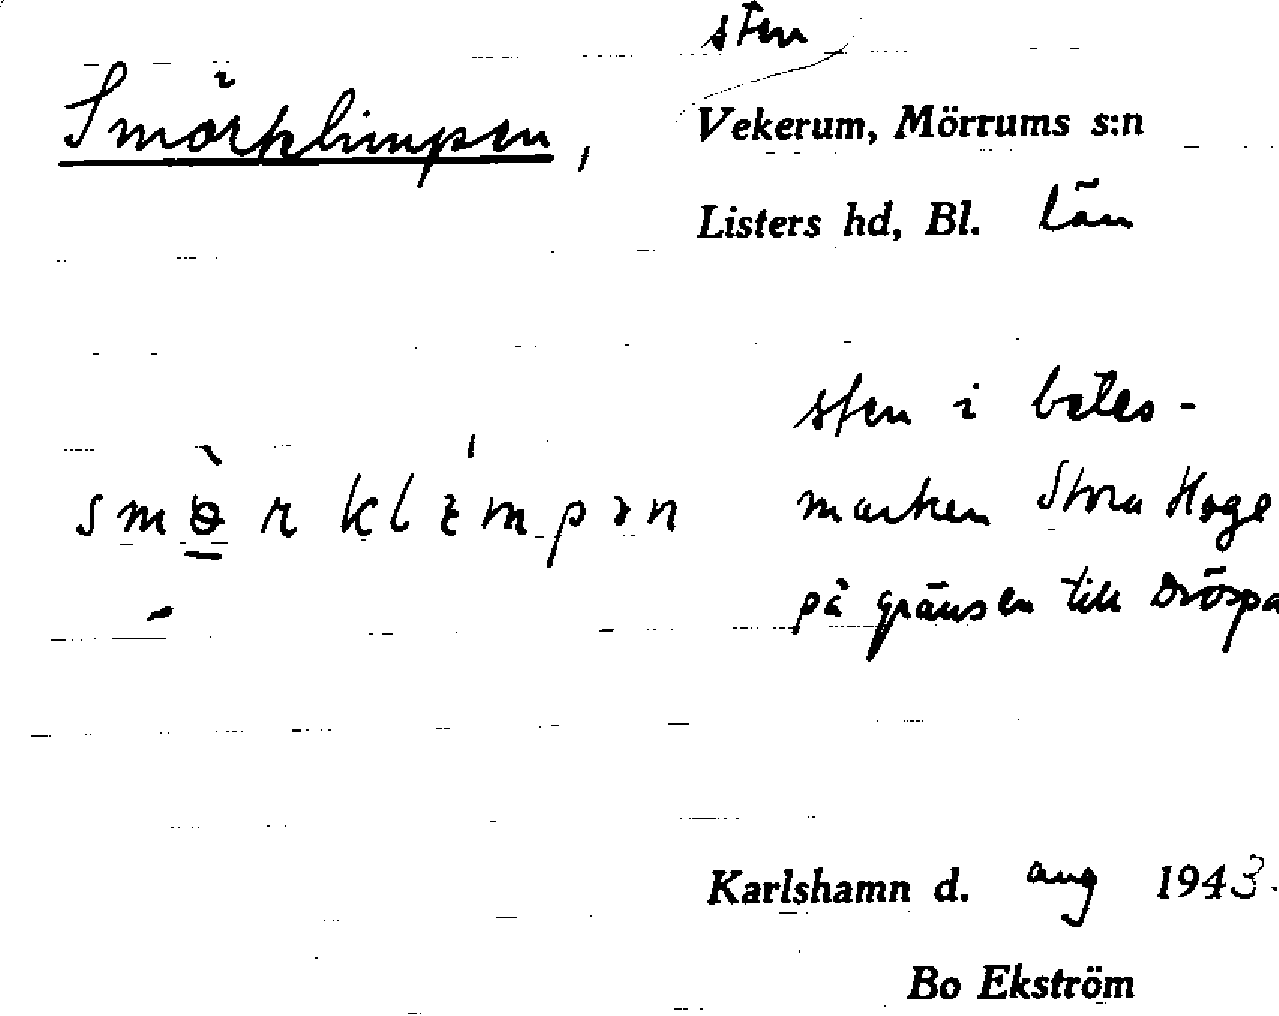 sten
Smörklimpen, Vekerum, Mörrums s:n
Listers hd, Bl. län
sten i betes-
smörklimpən marken Stora Hage
på gränsen till
Karlshamn d. aug 1943.
Bo Ekström